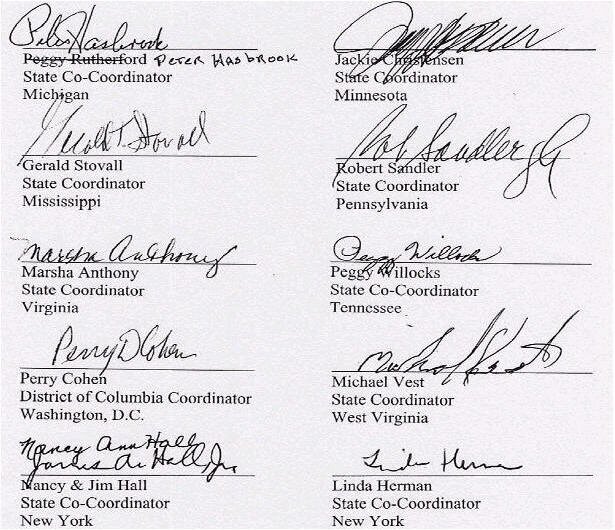 Peter Hasbrook
Peggy Rutherford Peter Hasbrook
State Co-Coordinator
Michigan
Jackie Christensen
State Coordinator
Minnesota
Gerald T. Stovall
Gerald Stovall
State Coordinator
Mississippi
Rob Sandler
Robert Sandler
State Coordinator
Pennsylvania
Marsha Anthony
Marsha Anthony
State Coordinator
Virginia
Peggy Willocks
Peggy Willocks
State Co-Coordinator
Tennessee
Perry D Cohen
Perry Cohen
District of Columbia Coordinator
Washington, D.C.
Michael Vest
State Coordinator
West Virginia
Nancy Ann Hall
James A. Hall, Jr.
Nancy & Jim Hall
State Co-Coordinator
New York
Linda Herman
Linda Herman
State Co-Coordinator
New York